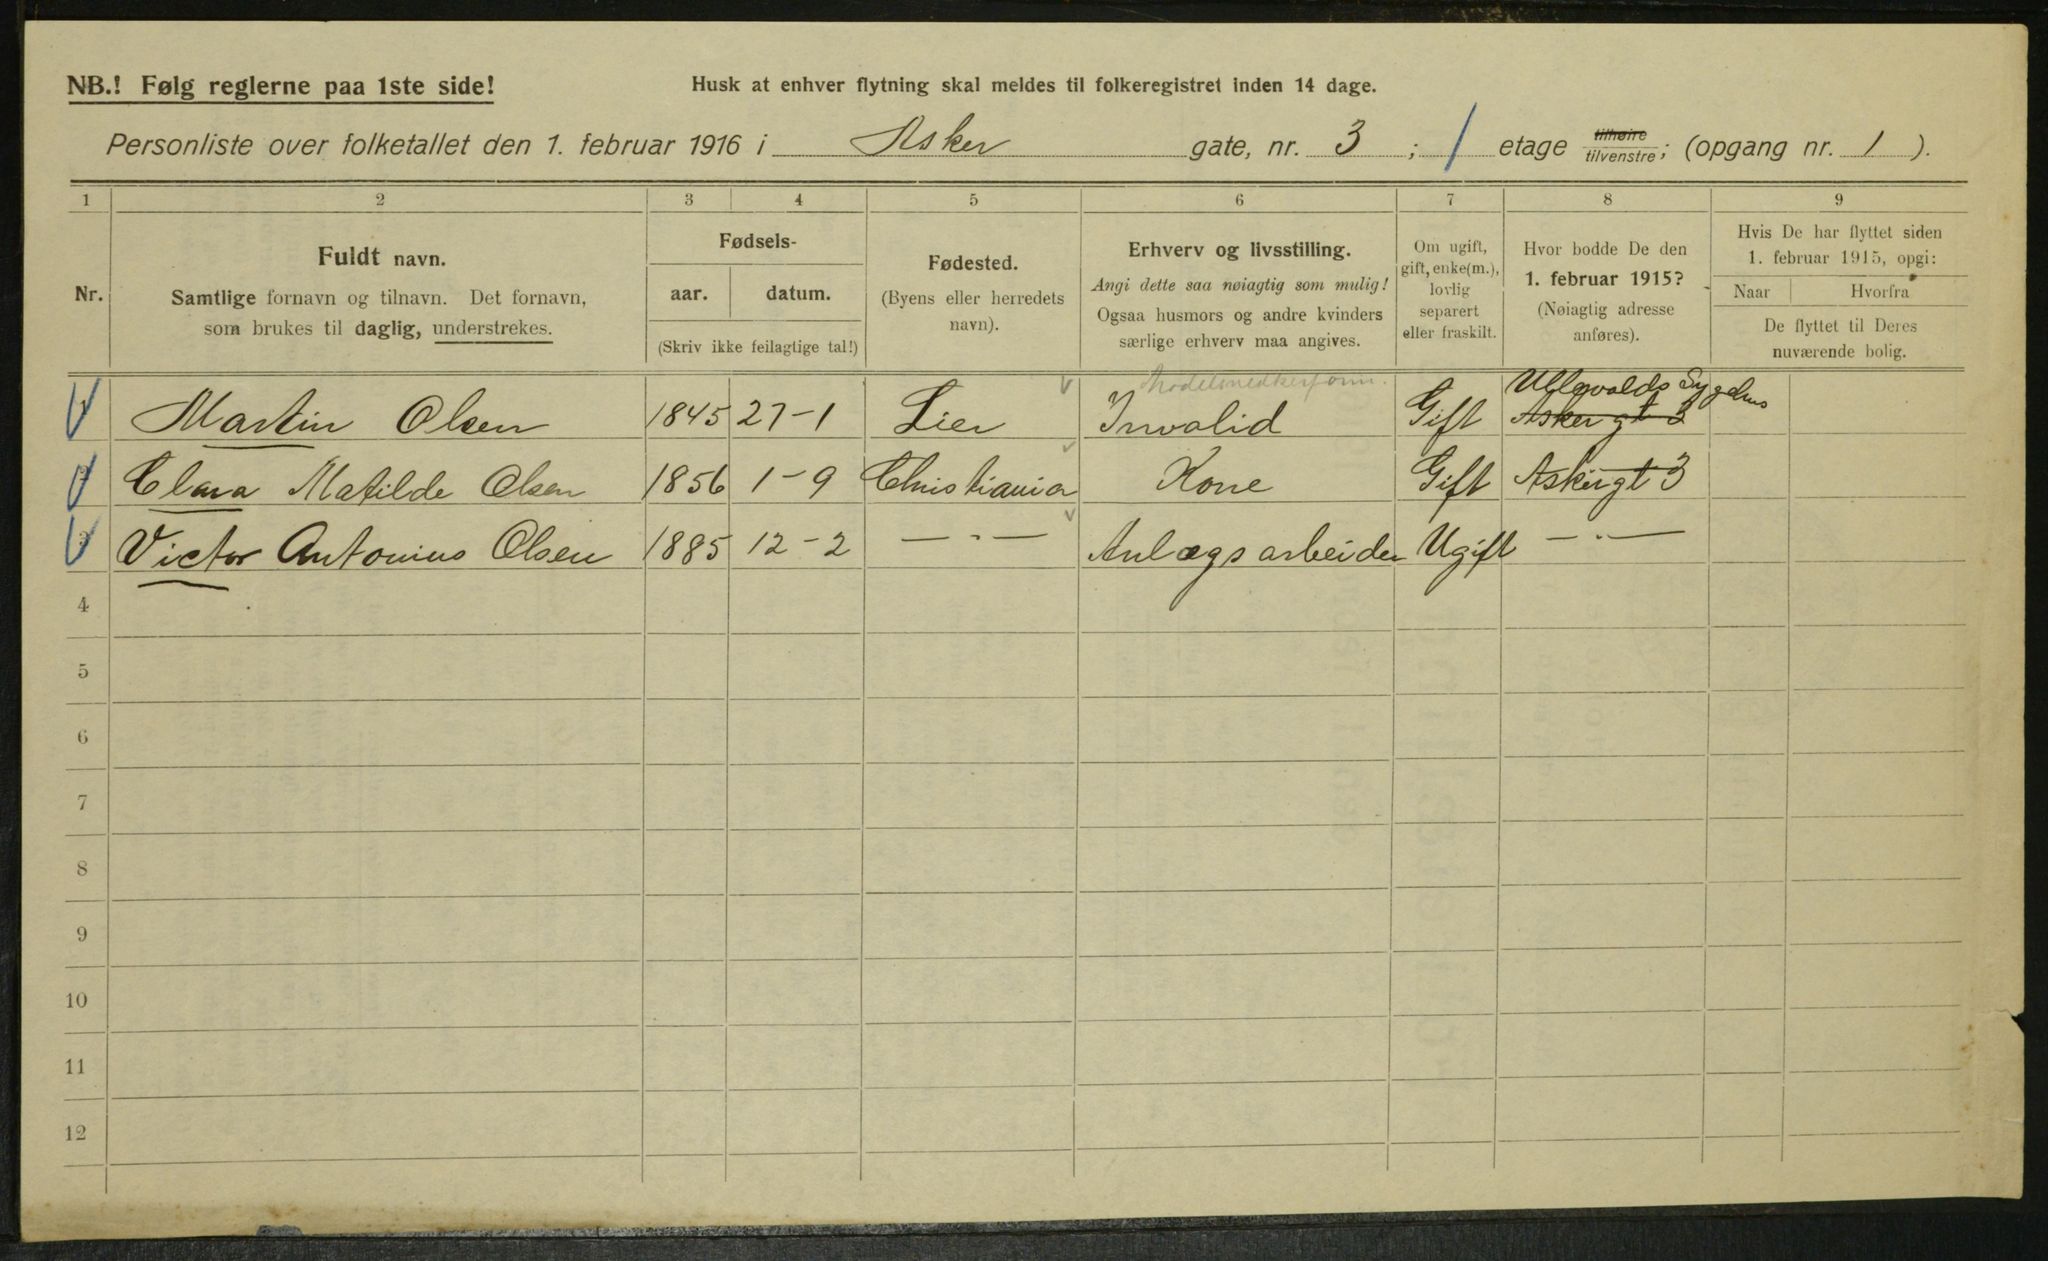 NB.! Følg reglerne paa 1ste side!
Husk at enhver flytning skal meldes til folkeregistret inden 14 dage.
Personliste over folketallet den 1. februar 1916 i Asker gate, nr. 3 ; 1 etage tilhøire tilvenstre; (opgang nr. 1 ).
1 2 3 4 5 6 7 8 9
Nr.
Fuldt navn.
Samtlige fornavn og tilnavn. Det fornavn,
som brukes til daglig, understrekes.
Fødsels-
aar. datum.
(Skriv ikke feilagtige tal!)
Fødested.
(Byens eller herredets
navn).
Erhverv og livsstilling.
Angi dette saa nøiagtig som mulig!
Ogsaa husmors og andre kvinders
særlige erhverv maa angives.
Om ugift,
gift, enke(m.),
lovlig
separert
eller fraskilt.
Hvor bodde De den
1. februar 1915?
(Nøiagtig adresse
anføres).
Hvis De har flyttet siden
1. februar 1915, opgi:
Naar Hvorfra
De flyttet til Deres
nuværende bolig.
Ullevolds Sygehus
1 Martin Olsen 1845 27-1 Lier Invalid Gift Asker gt 3
2 Clara Matilde Olsen 1856 1-9 Christiania Kone Gift Askergt 3
3 Victor Antonius Olsen 1885 12-2 — " — Anlægsarbeider Ugift — " —
4
5
6
7
8
9
10
11
12